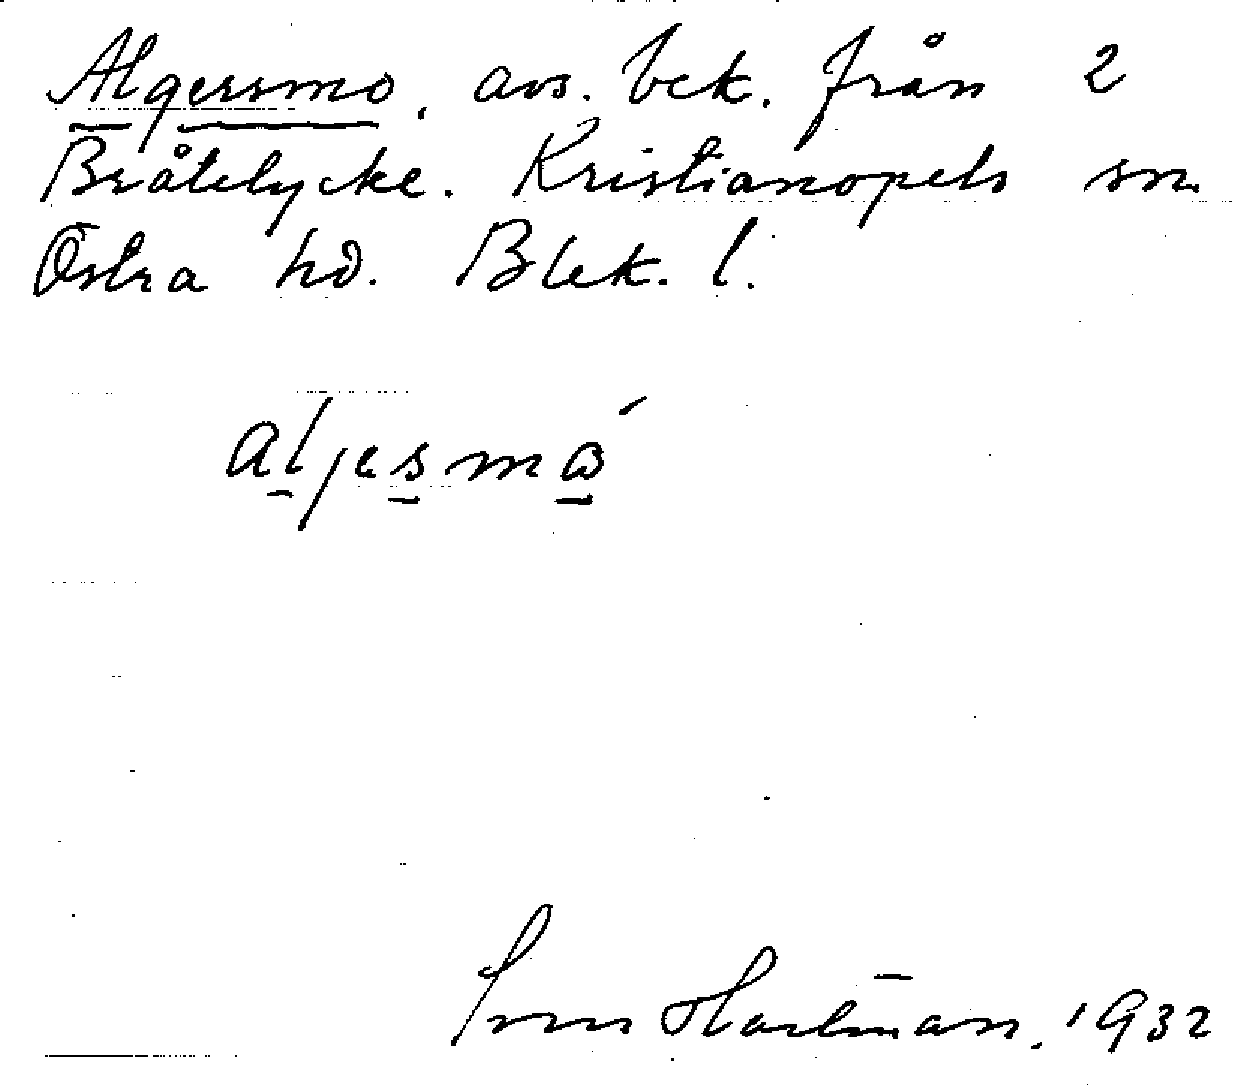 Algersmo. avs. bek. från 2
Bråtelycke. Kristianopels sn
Östra hd. Blek. l.
aljesmó
Hartman. 1932